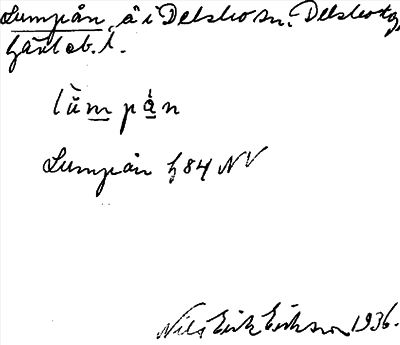 Lumpån, å i Delsbo sn. Delsbo tg,
Gävleb. l.
lùmpå̀n
Lumpån h 84 NV
Nils Erik Eriksson 1936.